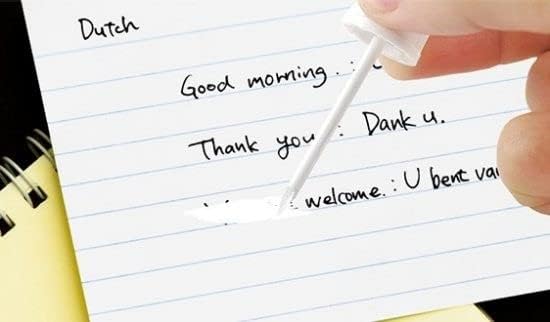 Dutch
Good morning. :
Thank you : Dank u.
welcome. : U bent